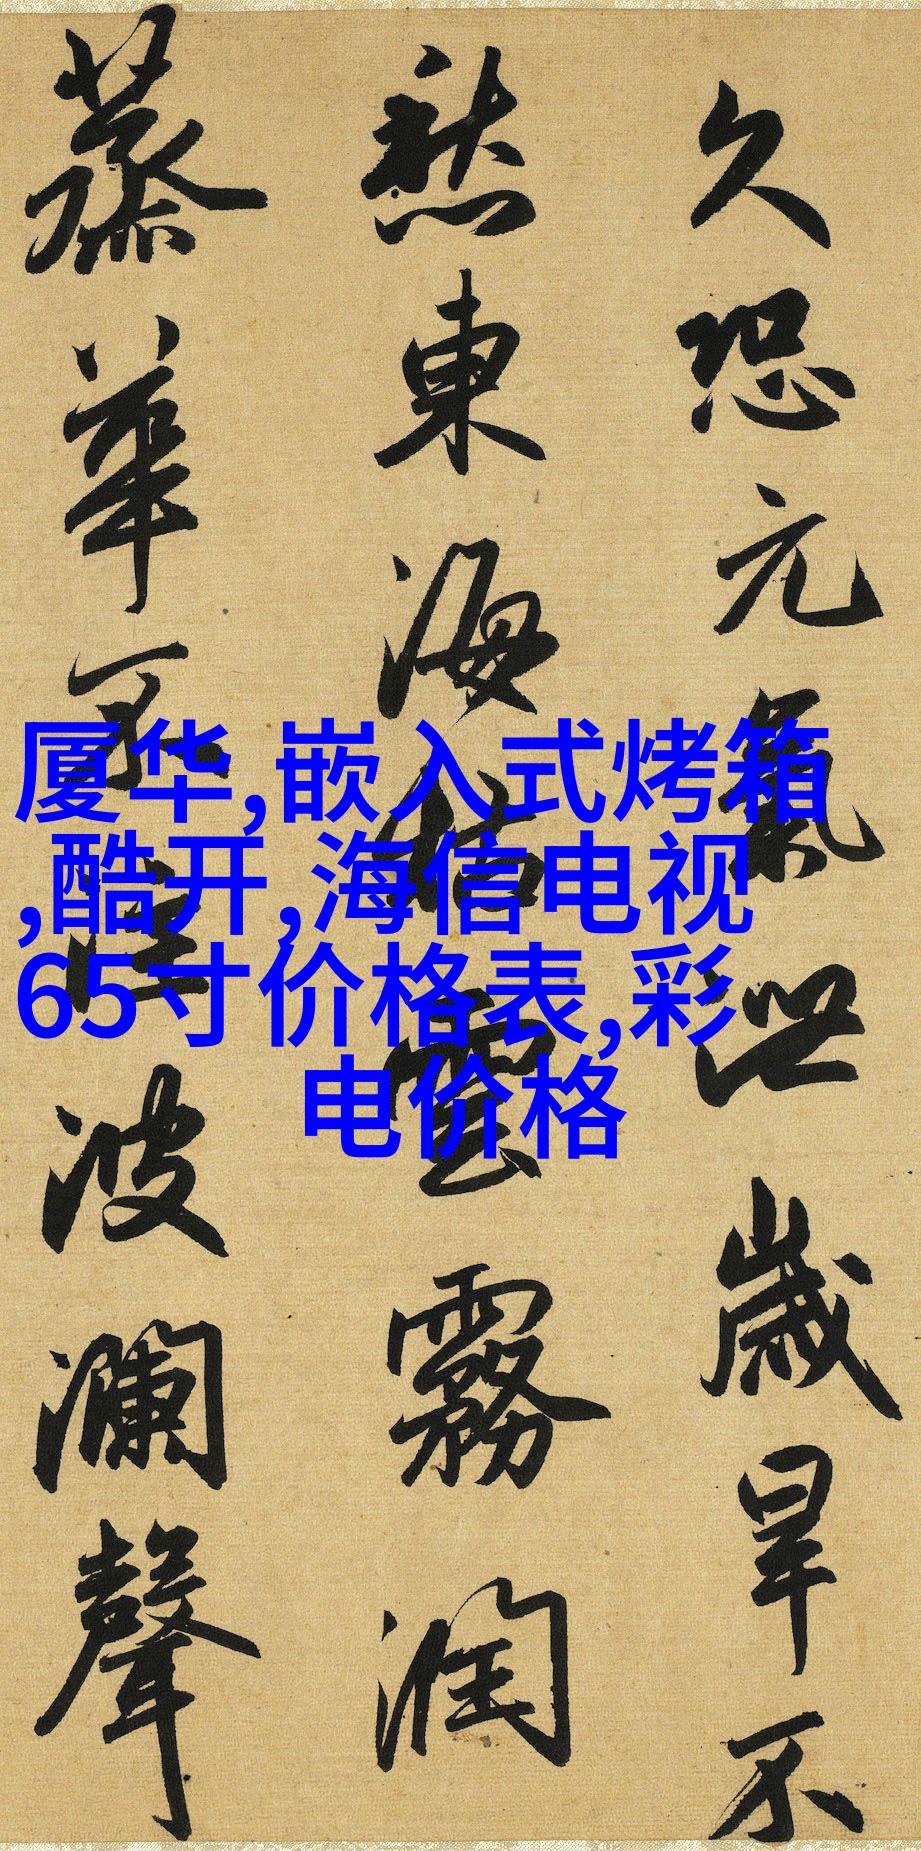 久恐元氣泄歲旱不
愁東海枯雲霧潤
蒸華不注波瀾聲
厦华,嵌入式烤箱
,酷开,海信电视
65寸价格表,彩
电价格